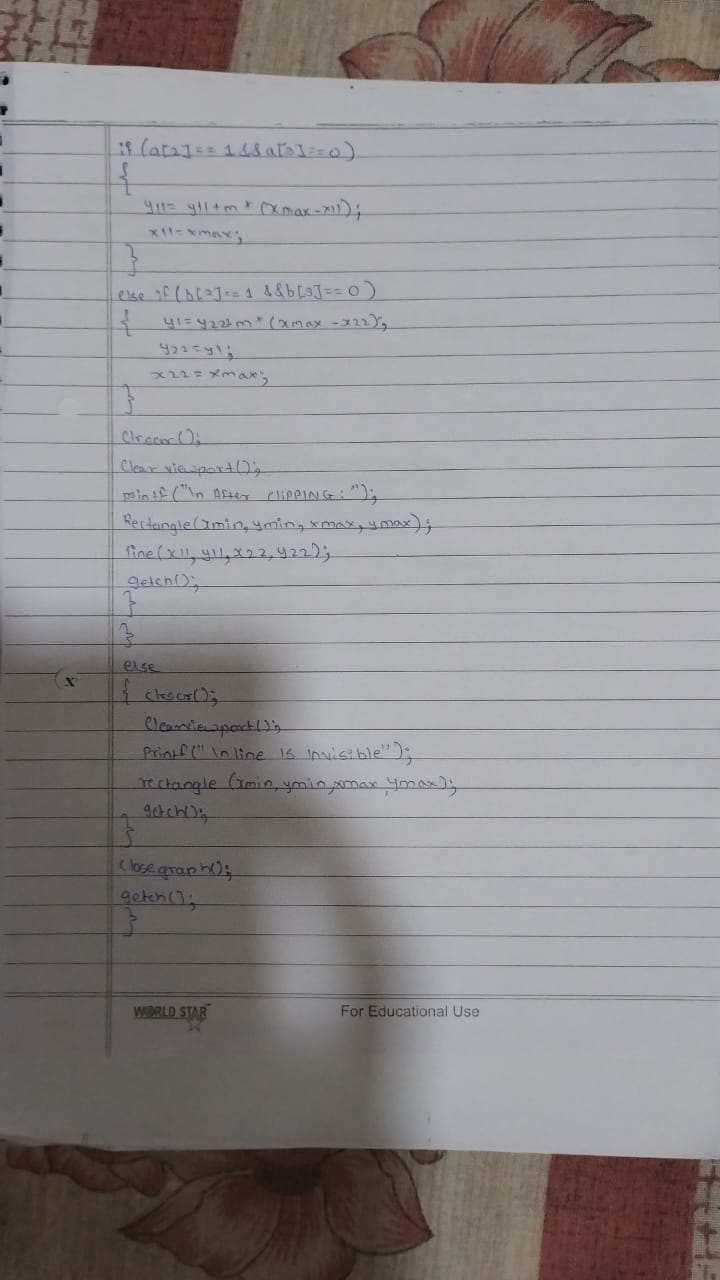 if (a[2]== 1 && a[3]==0)
{
y11= y11+m * (xmax-x11);
x11=xmax;
}
else if (b[2]== 1 &&b[3]==0)
{ y1=y22+m* (xmax -x22);
y22=y1;
x22= xmax;
}
Clrscr();
Clear viewport();
printf("\n After CliPPING: ");
Rectangle(xmin, ymin, xmax, ymax);
line(x11, y11, x22, y22);
getch();
}
}
else
{ clrscr();
Clearviewport();
Printf(" \n line is invisible");
rectangle (xmin, ymin, xmax, ymax);
getch();
}
closegraph();
getch();
}
X
WORLD STAR
For Educational Use